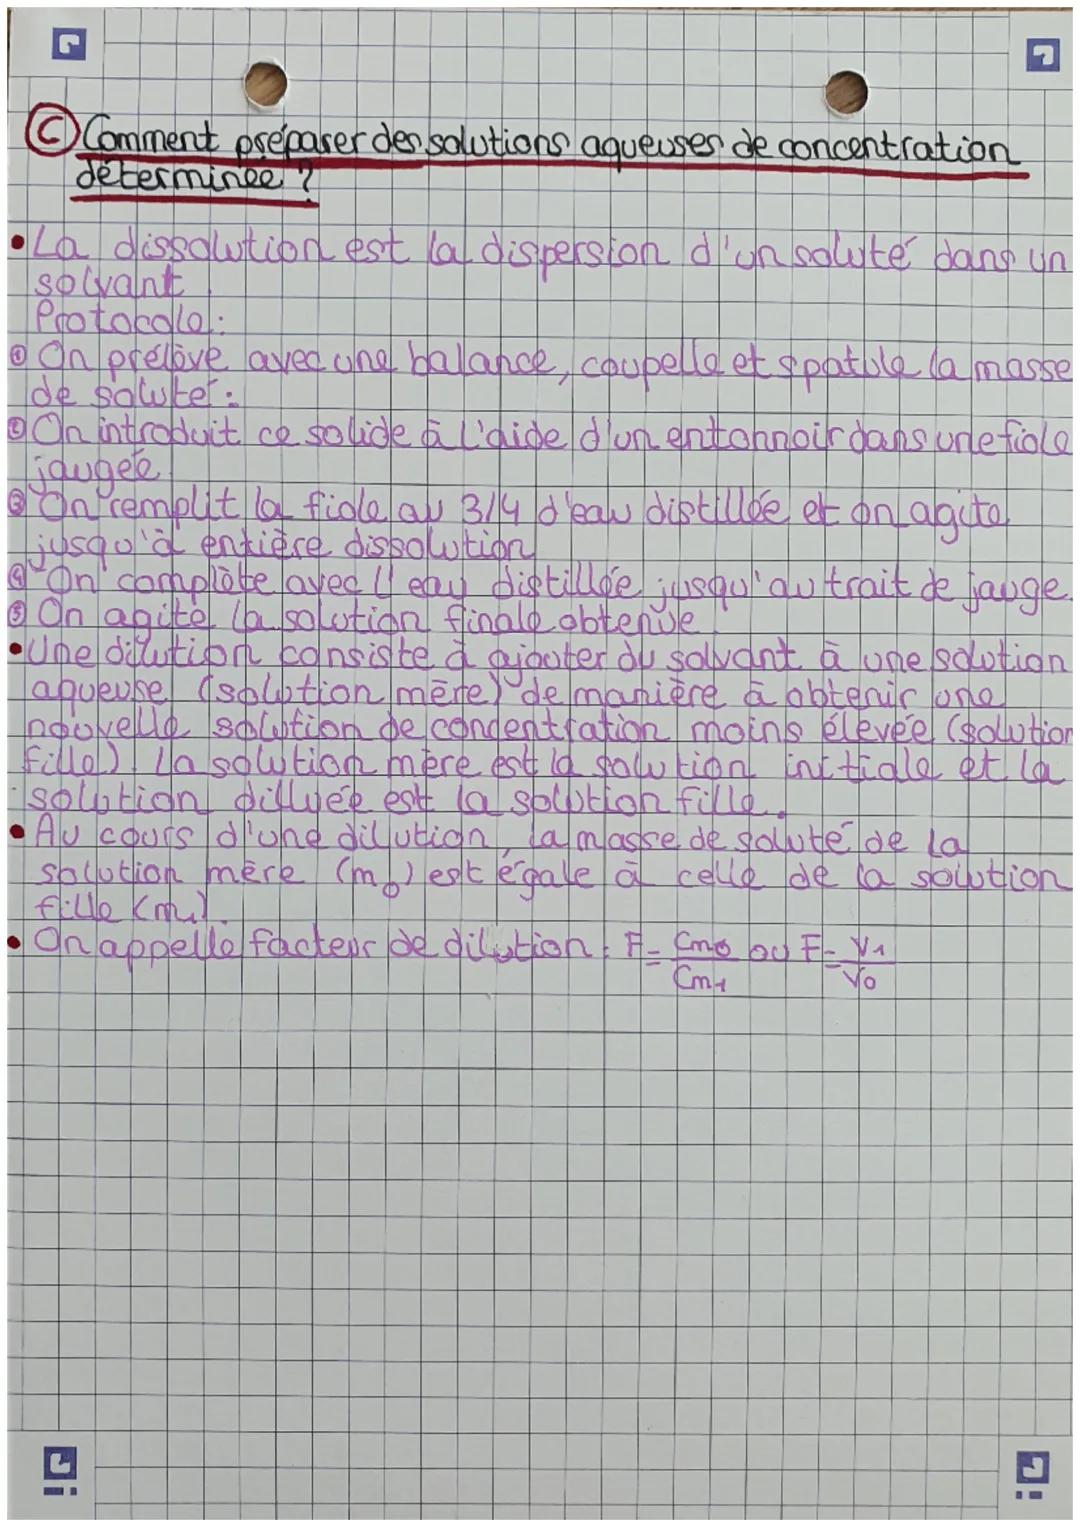 C Comment préparer des solutions aqueuses de concentration
déterminée ?
• La dissolution est la dispersion d'un soluté dans un
solvant.
Protocole :
① On prélève avec une balance, coupelle et spatule la masse
de soluté :
② On introduit ce solide à l'aide d'un entonnoir dans une fiole
jaugée.
③ On remplit la fiole au 3/4 d'eau distillée et on agite
jusqu'à entière dissolution
④ On complète avec l'eau distillée jusqu'au trait de jauge.
⑤ On agite la solution finale obtenue.
• Une dilution consiste à ajouter du solvant à une solution
aqueuse (solution mère) de manière à obtenir une
nouvelle solution de concentration moins élevée (solution
fille). La solution mère est la solution initiale et la
solution diluée est la solution fille.
• Au cours d'une dilution, la masse de soluté de la
solution mère (m₀) est égale à celle de la solution
fille (m₁).
• On appelle facteur de dilution : F = Cm₀/Cm₁ ou F = V₁/V₀